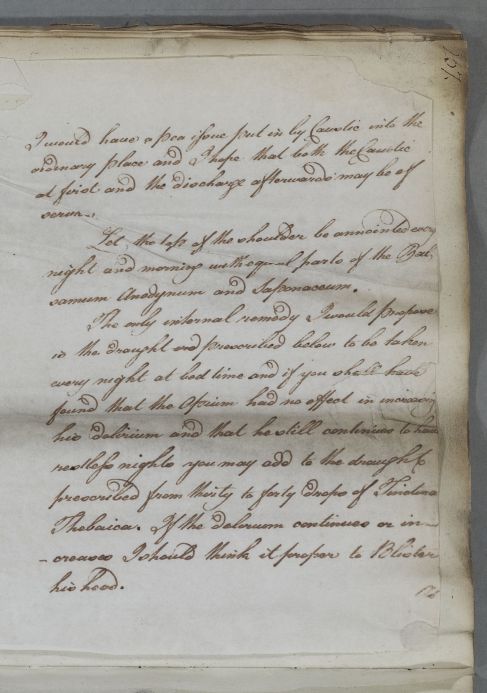 157
I would have a pea issue put in by Caustic into the
ordinary place and I hope that both the Caustic
at first and the discharge afterwards may be of
service.
Let the top of the shoulder be annointed every
night and morning with equal parts of the Bal,
samum Anodynum and Saponaceum.
The only internal remedy I would propose
is the draught prescribed below to be taken
every night at bed time and if you shall have
found that the Opium had no effect in increasing
his delirium and that he still continues to have
restless nights you may add to the draught
prescribed from thirty to forty drops of Tinctura
Thebaica. If the delirium continues or in-
-creases I should think it proper to Blister
his head.